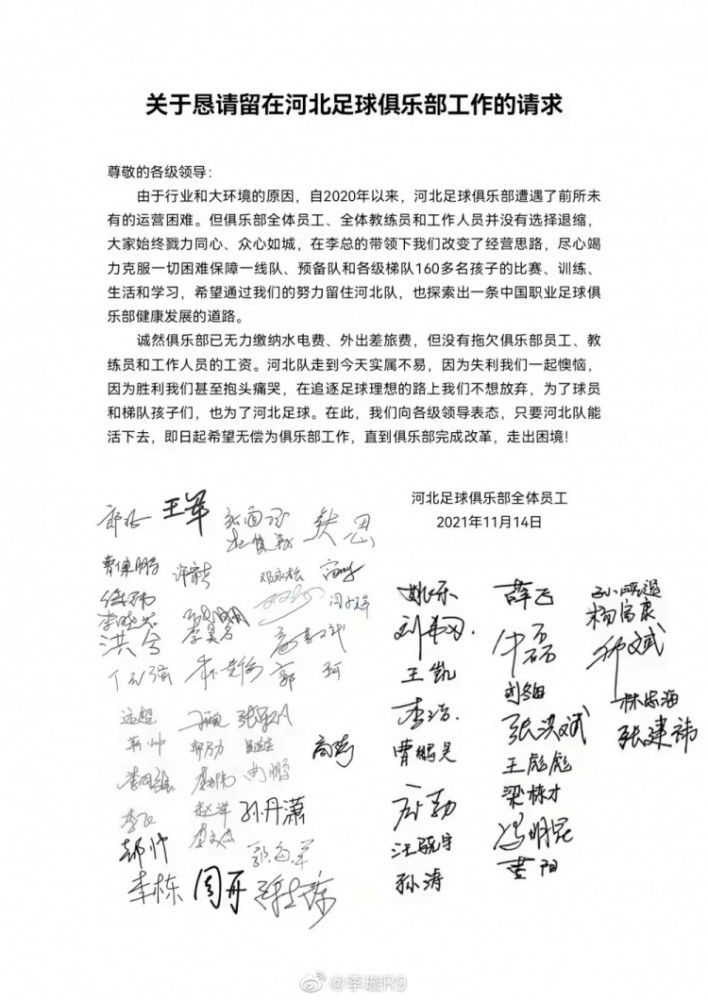 关于恳请留在河北足球俱乐部工作的请求
尊敬的各级领导：
由于行业和大环境的原因，自2020年以来，河北足球俱乐部遭遇了前所未
有的运营困难。但俱乐部全体员工、全体教练员和工作人员并没有选择退缩，
大家始终戮力同心、众心如城，在李总的带领下我们改变了经营思路，尽心竭
力克服一切困难保障一线队、预备队和各级梯队160多名孩子的比赛、训练、
生活和学习，希望通过我们的努力留住河北队，也探索出一条中国职业足球俱
乐部健康发展的道路。
诚然俱乐部已无力缴纳水电费、外出差旅费，但没有拖欠俱乐部员工、教
练员和工作人员的工资。河北队走到今天实属不易，因为失利我们一起懊恼，
因为胜利我们甚至抱头痛哭，在追逐足球理想的路上我们不想放弃，为了球员
和梯队孩子们，也为了河北足球。在此，我们向各级领导表态，只要河北队能
活下去，即日起希望无偿为俱乐部工作，直到俱乐部完成改革，走出困境！
河北足球俱乐部全体员工
2021年11月14日
王军
曹保鹏
李晓光
洪兮
郭珂
远超
靳帅
高奇
赵洋
孙丹潇
郝帅
李栋
周开
姚乐
王凯
李浩
曹鹏昊
汪骁宇
孙涛
薛飞
牛磊
张洪斌
王彪彪
梁栋才
冯明昆
黄阳
杨富康
林忠海
张建祎
@李璇R9